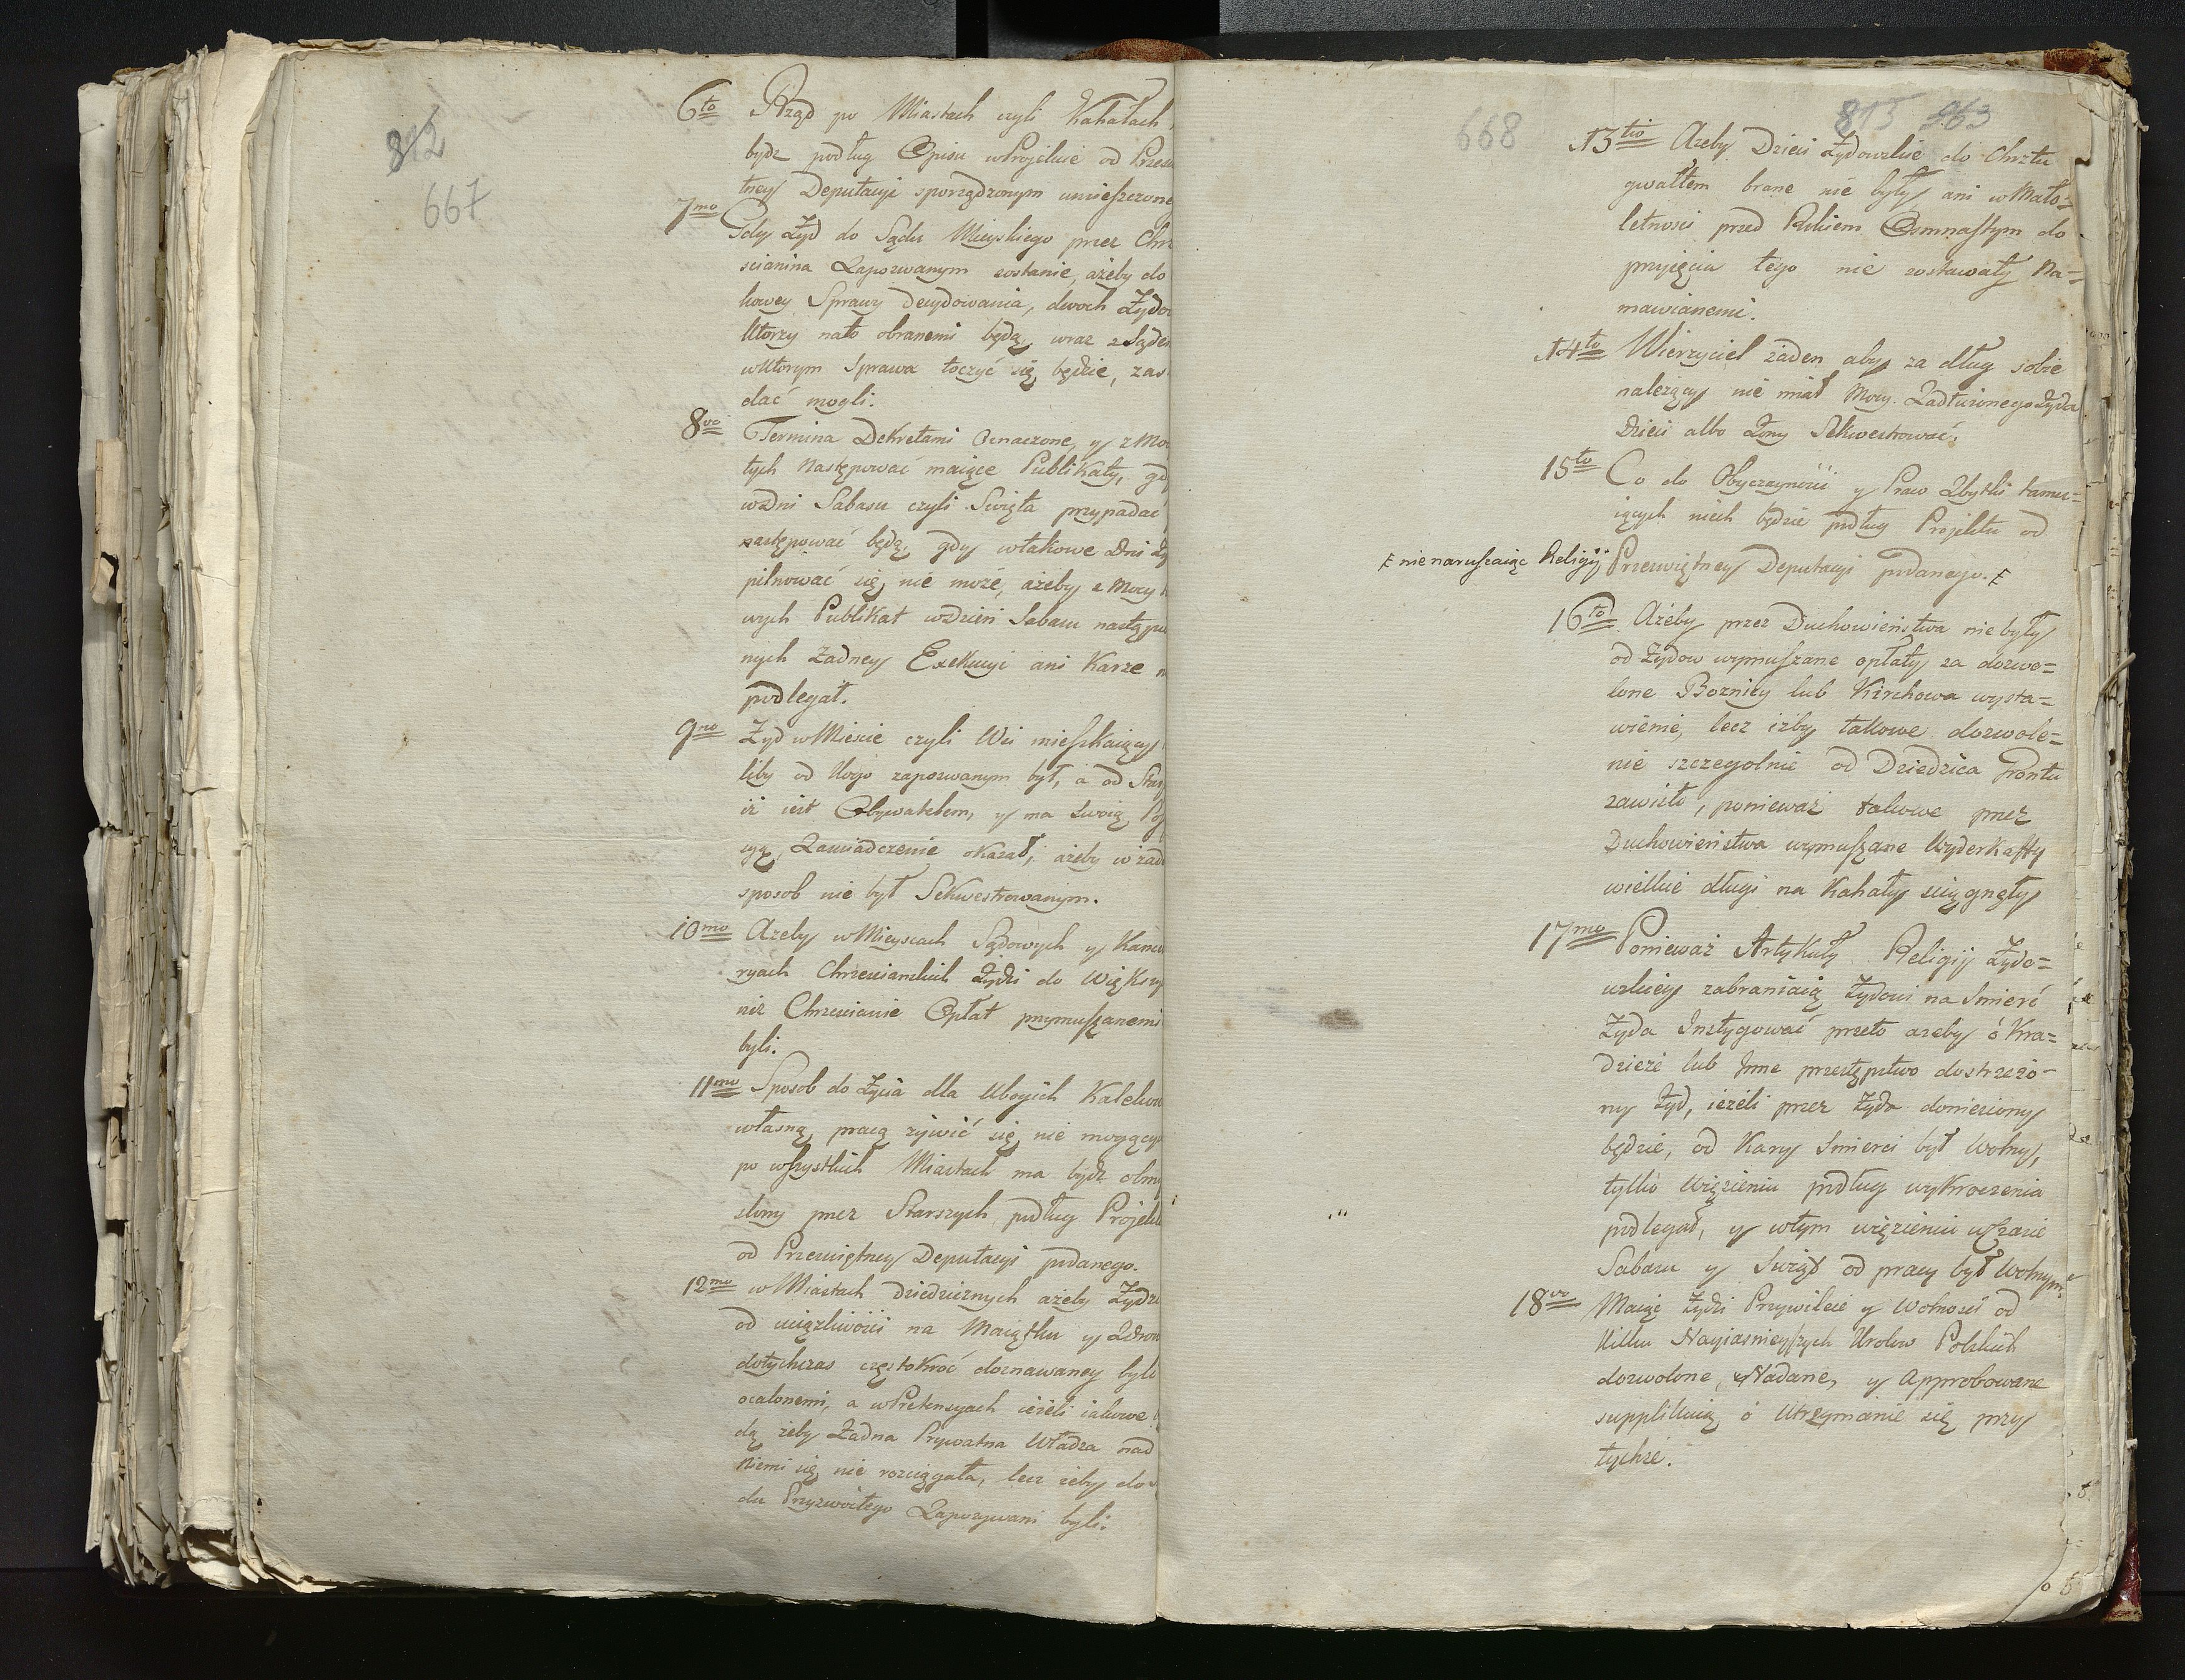 812
667
6to Rząd po Miastach czyli Kahałach
bydz podług Opisu w Projekcie od Przesw
tney Deputacyi sporządzonym umieszczone
7mo Gdy Żyd do Sądu Mieyskiego przez Chrz
scianina Zapozwanym zostanie, ażeby do
kowey Sprawy decydowania, dwoch Żydow
ktorzy nato obranemi będą, wraz z Sądem
w ktorym Sprawa toczyć się będzie, zas
dać mogli.
8vo Termina Dekretami Oznaczone, y z Mo
tych następować maiące Publikaty, gdy
w Dni Sabasu czyli Swięta przypadać
następować będą, gdy w takowe Dni Ży
pilnować się nie może, ażeby z Mocy
wych Publikat w Dzień Sabasu nastąpio
nych żadney Exekucyi ani Karze n
podlegał.
9no Żyd w Miescie czyli Wsi mieszkaiący
liby od Kogo zapozwanym był, a od Star
iż iest Obywatelem, y ma swoią Po
cyą, Zaswiadczenie okazał, ażeby w żad
sposob nie był Sekwestrowanym.
10mo Azeby w Mieyscach Sądowych y Kance
ryach Chrzescianskich Żydzi do Większy
niż Chrzescianie Opłat przymuszanemi
byli.
11mo Sposob do Życia dla Ubogich Kalekow
własną pracą żywić się nie mogącyc
po wszystkich Miastach ma bydz obmy
slony przez Starszych podług Projektu
od Przeswiętney Deputacyi podanego.
12mo w Miastach dziedzicznych ażeby Żydzi
od uciążliwości na Maiątku y Zdrow
dotychczas częstokroć doznawaney byli
ocalonemi, a w Pretensyach ieżeli iakowe b
dą żeby Żadna Prywatna Władza nad
niemi się nie rozciągała, lecz żeby do S
du Przyzwoitego Zapozywani byli.
668
815 963
13tio Azeby Dzieci Żydowskie do Chrztu
gwałtem brane nie były, ani w Mało=
letnosci przed Rokiem Osmnastym do
przyięcia tego nie zostawały Na=
mawianemi.
14to Wierzyciel żaden aby za dług sobie
należący nie miał Mocy Zadłużonego Żyda
Dzieci albo Żony Sekwestrować.
15to Co do Obyczayności y Praw Zbytki tamu=
iących niech będzie podług Projektu od
Przeswiętney Deputacyi podanego. #
# nie naruszaiąc Religij
16to Ażeby przez Duchowieństwa nie były
od Żydow wymuszane opłaty za dozwo=
lone Boznicy lub Kirchowa wysta=
wienie, lecz iżby takowe dozwole=
nie szczegolnie od Dziedzica Gruntu
zawisło, ponieważ takowe przez
Duchowieństwa wymuszane Wyderkaffy
wielkie długi na Kahały sciągnęły
17mo Ponieważ Artykuły Religij Żydo=
wskiey zabraniaią Żydowi na Smierć
Żyda Instygować przeto azeby o Kra=
dzież lub Inne przestępstwo dostrzeżo=
ny Żyd, ieżeli przez Żyda doniesiony
będzie, od Kary Smierci był Wolny,
tylko więzieniu podług wykroczenia
podlegał, y w tym więzieniu w czasie
Sabasu y Swiąt od pracy był Wolnym
18vo Maiąc Żydzi Przywileie y Wolnosci od
kilku Nayiasnieyszych Krolow Polskich
dozwolone, Nadane, y Approbowane
supplikuią o Utrzymanie się przy
tychże.